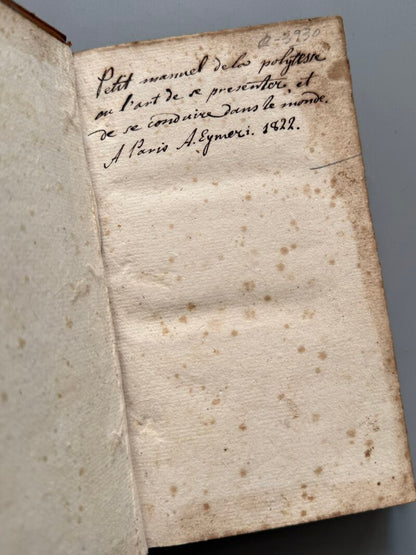 a-3930
Petit manuel de la polytesse
ou l'art de se presenter, et
de se conduire dans le monde.
A Paris A. Eymeri. 1822.